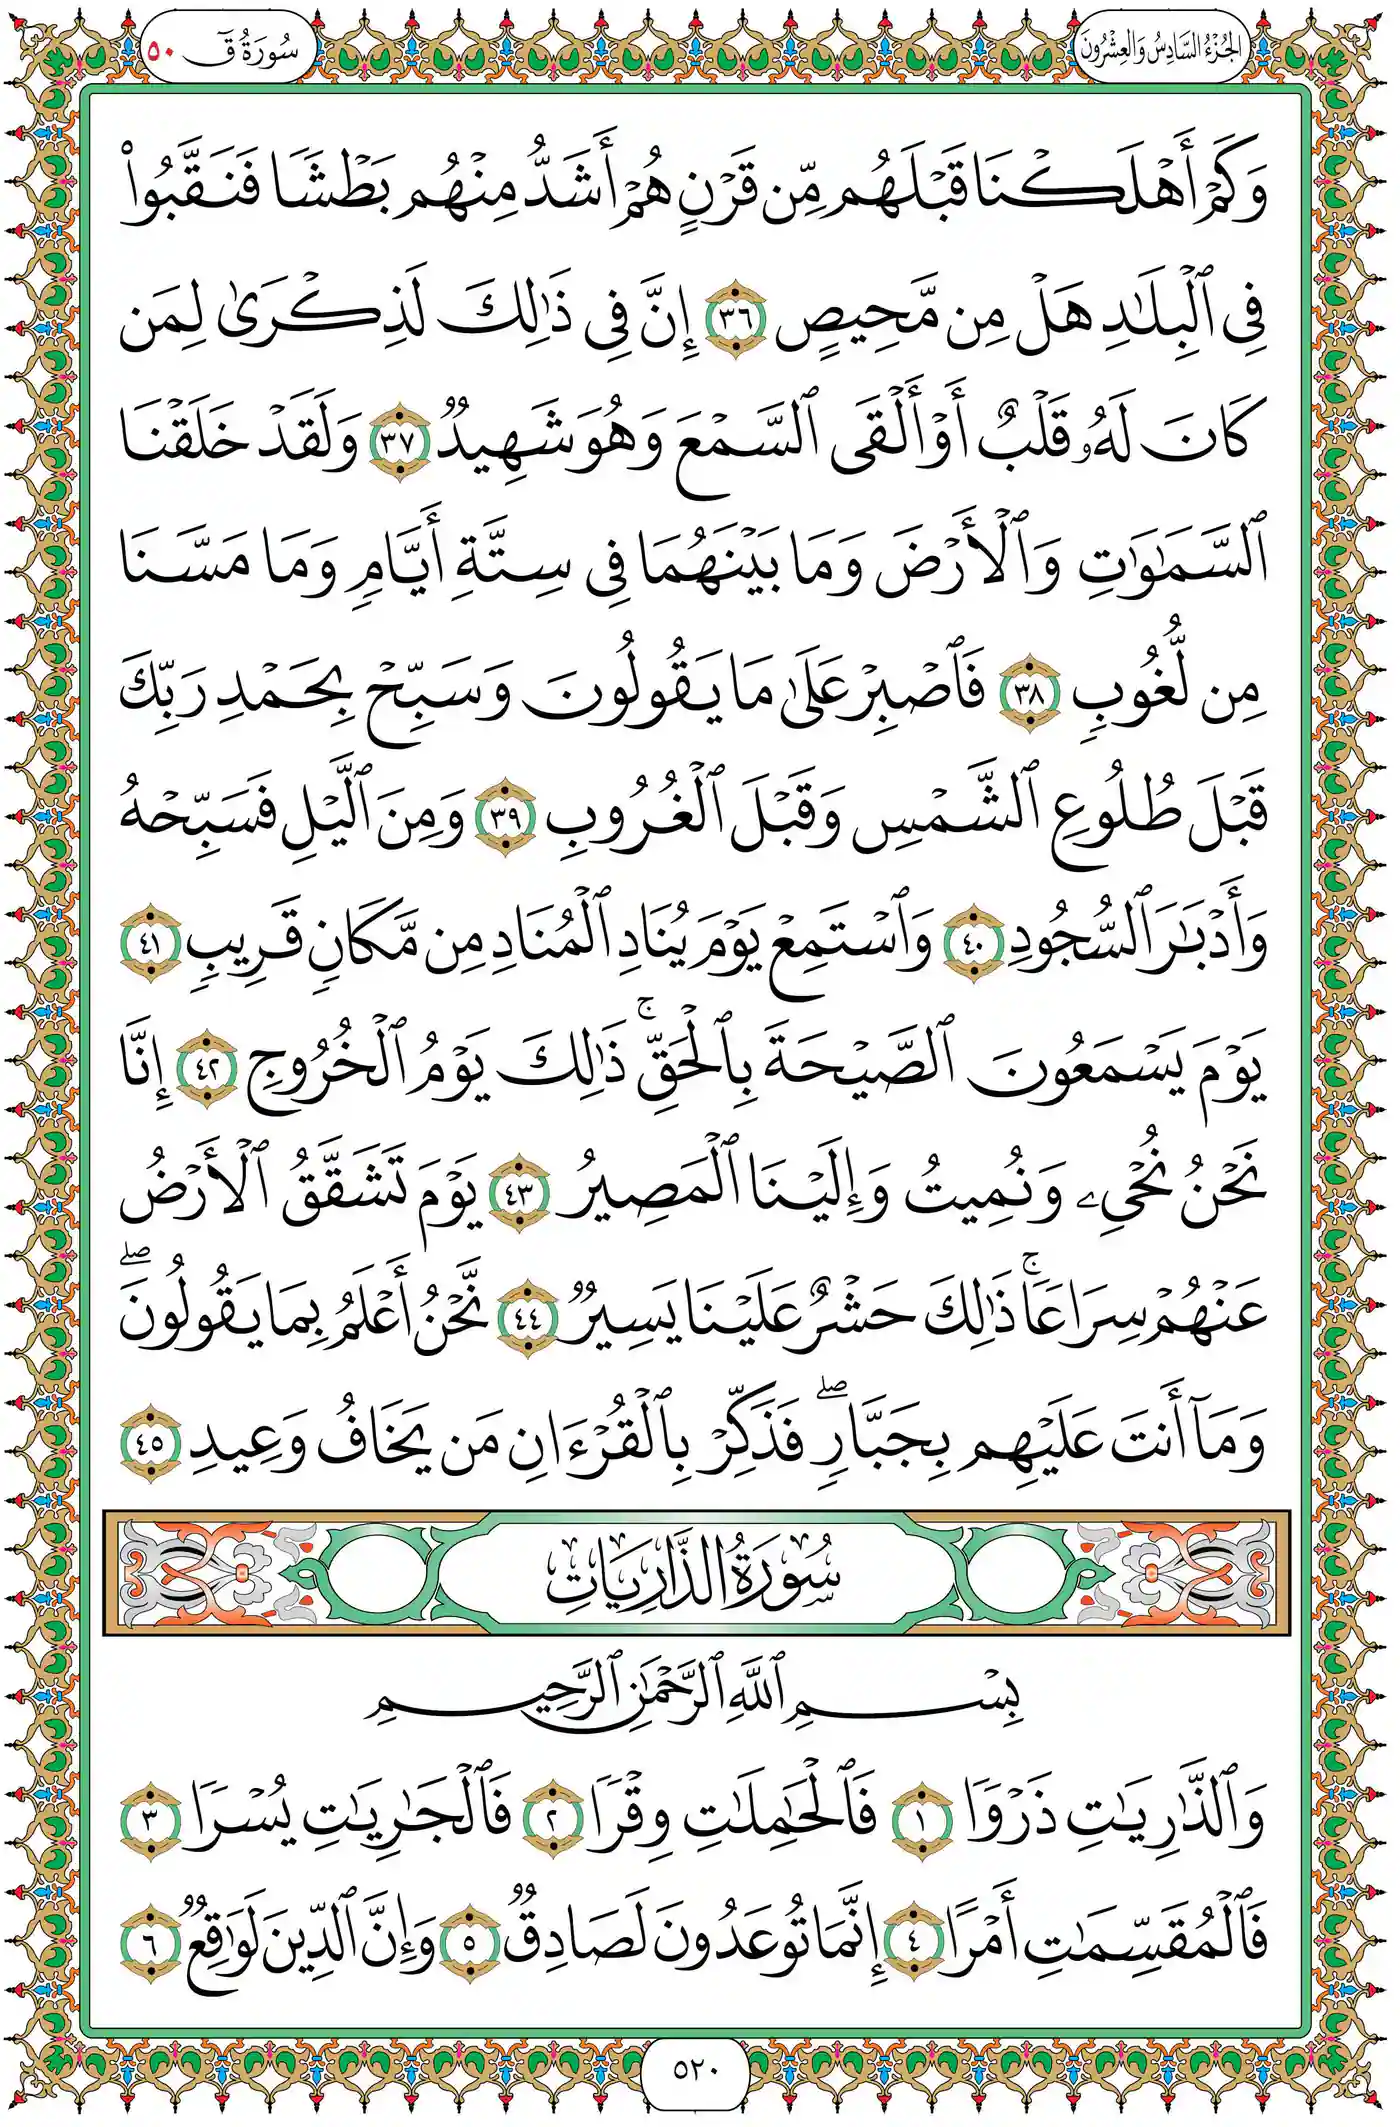 الجزء السادس والعشرون
سورة ق ٥٠
وَكَمْ أَهْلَكْنَا قَبْلَهُم مِّن قَرْنٍ هُمْ أَشَدُّ مِنْهُم بَطْشًا فَنَقَّبُوا۟
فِى ٱلْبِلَٰدِ هَلْ مِن مَّحِيصٍ ٣٦ إِنَّ فِى ذَٰلِكَ لَذِكْرَىٰ لِمَن
كَانَ لَهُۥ قَلْبٌ أَوْ أَلْقَى ٱلسَّمْعَ وَهُوَ شَهِيدٌ ٣٧ وَلَقَدْ خَلَقْنَا
ٱلسَّمَٰوَٰتِ وَٱلْأَرْضَ وَمَا بَيْنَهُمَا فِى سِتَّةِ أَيَّامٍ وَمَا مَسَّنَا
مِن لُّغُوبٍ ٣٨ فَٱصْبِرْ عَلَىٰ مَا يَقُولُونَ وَسَبِّحْ بِحَمْدِ رَبِّكَ
قَبْلَ طُلُوعِ ٱلشَّمْسِ وَقَبْلَ ٱلْغُرُوبِ ٣٩ وَمِنَ ٱلَّيْلِ فَسَبِّحْهُ
وَأَدْبَٰرَ ٱلسُّجُودِ ٤٠ وَٱسْتَمِعْ يَوْمَ يُنَادِ ٱلْمُنَادِ مِن مَّكَانٍ قَرِيبٍ ٤١
يَوْمَ يَسْمَعُونَ ٱلصَّيْحَةَ بِٱلْحَقِّ ۚ ذَٰلِكَ يَوْمُ ٱلْخُرُوجِ ٤٢ إِنَّا
نَحْنُ نُحْىِۦ وَنُمِيتُ وَإِلَيْنَا ٱلْمَصِيرُ ٤٣ يَوْمَ تَشَقَّقُ ٱلْأَرْضُ
عَنْهُمْ سِرَاعًا ۚ ذَٰلِكَ حَشْرٌ عَلَيْنَا يَسِيرٌ ٤٤ نَّحْنُ أَعْلَمُ بِمَا يَقُولُونَ ۖ
وَمَآ أَنتَ عَلَيْهِم بِجَبَّارٍ ۖ فَذَكِّرْ بِٱلْقُرْءَانِ مَن يَخَافُ وَعِيدِ ٤٥
سُورَةُ الذَّارِيَاتِ
بِسْمِ ٱللَّهِ ٱلرَّحْمَٰنِ ٱلرَّحِيمِ
وَٱلذَّٰرِيَٰتِ ذَرْوًا ١ فَٱلْحَٰمِلَٰتِ وِقْرًا ٢ فَٱلْجَٰرِيَٰتِ يُسْرًا ٣
فَٱلْمُقَسِّمَٰتِ أَمْرًا ٤ إِنَّمَا تُوعَدُونَ لَصَادِقٌ ٥ وَإِنَّ ٱلدِّينَ لَوَٰقِعٌ ٦
٥٢٠